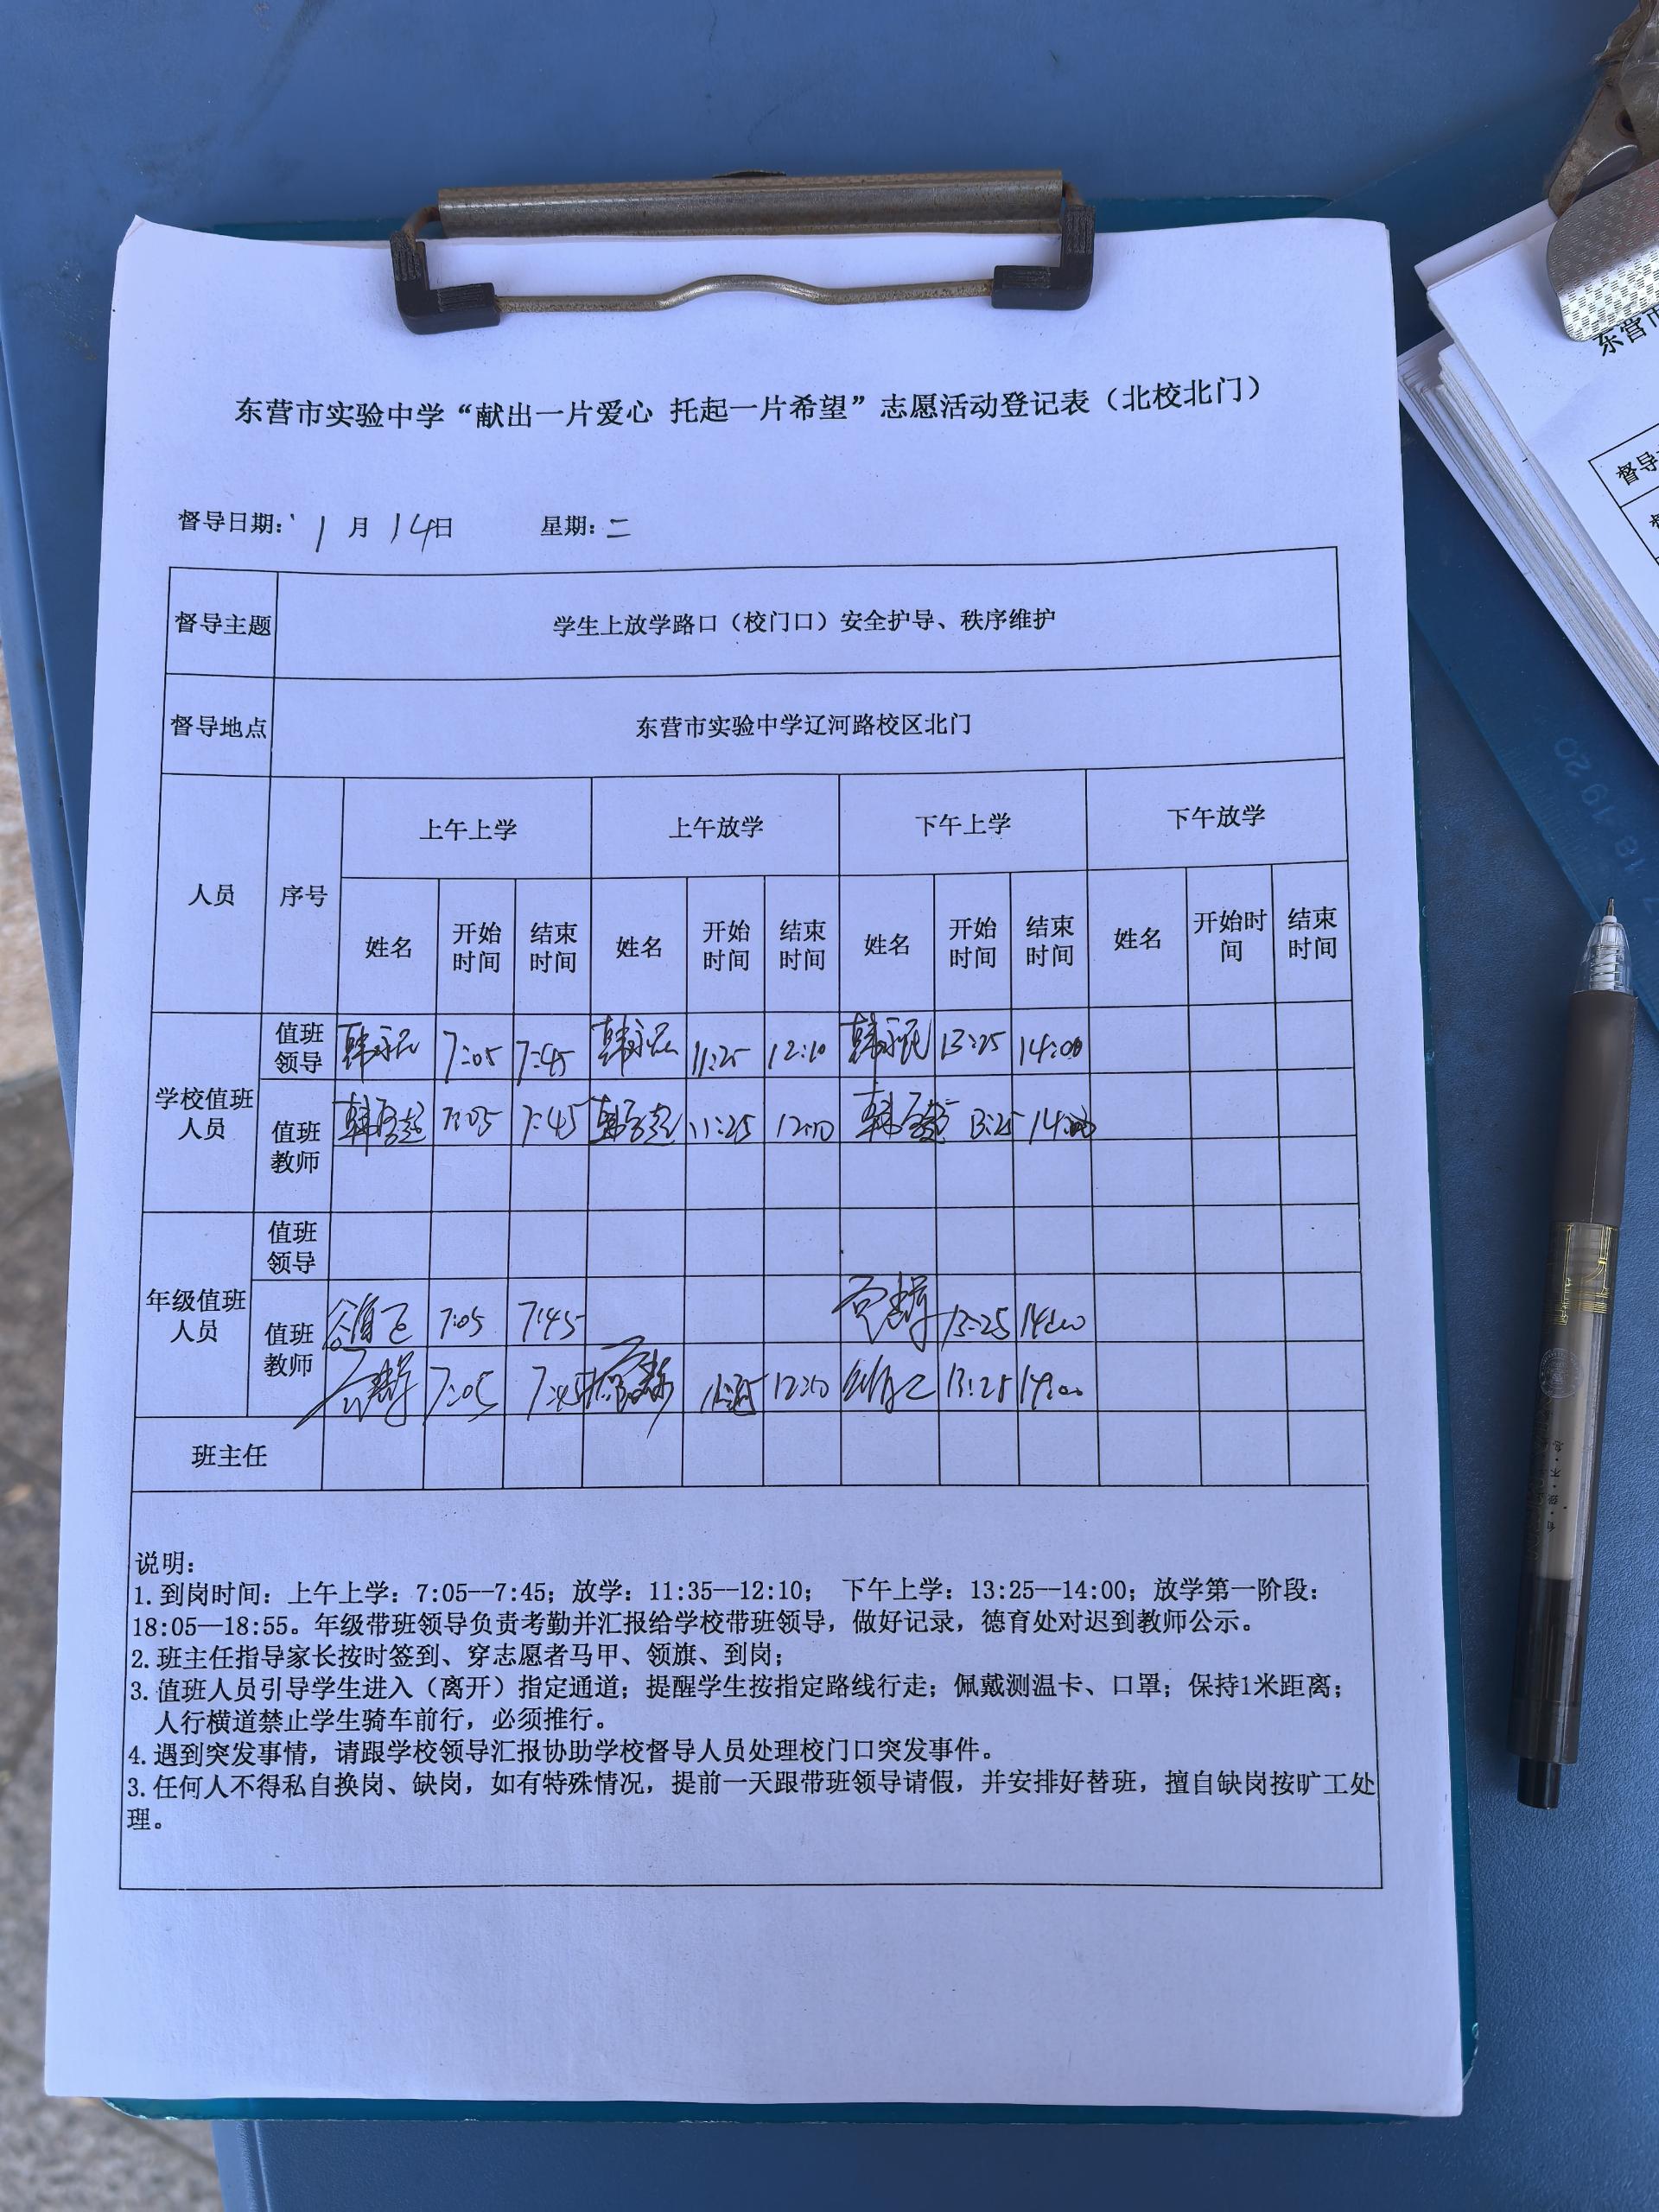 东营市实验中学“献出一片爱心 托起一片希望”志愿活动登记表（北校北门）
督导日期: 1 月 14日 星期: 二
督导主题 学生上放学路口（校门口）安全护导、秩序维护
督导地点 东营市实验中学辽河路校区北门
人员 序号 上午上学 上午放学 下午上学 下午放学
姓名 开始时间 结束时间 姓名 开始时间 结束时间 姓名 开始时间 结束时间 姓名 开始时间 结束时间
学校值班人员 值班领导 7:05 7:45 11:25 12:10 13:25 14:00
值班教师 7:05 7:45 11:25 12:10 13:25 14:00
年级值班人员 值班领导
值班教师 7:05 7:45 13:25 14:00
7:05 7:45 12:10 13:25 14:00
班主任
说明:
1.到岗时间: 上午上学: 7:05--7:45; 放学: 11:35--12:10; 下午上学: 13:25--14:00; 放学第一阶段:
18:05—18:55。年级带班领导负责考勤并汇报给学校带班领导，做好记录，德育处对迟到教师公示。
2.班主任指导家长按时签到、穿志愿者马甲、领旗、到岗;
3.值班人员引导学生进入（离开）指定通道; 提醒学生按指定路线行走; 佩戴测温卡、口罩; 保持1米距离;
人行横道禁止学生骑车前行，必须推行。
4.遇到突发事情，请跟学校领导汇报协助学校督导人员处理校门口突发事件。
3.任何人不得私自换岗、缺岗，如有特殊情况，提前一天跟带班领导请假，并安排好替班，擅自缺岗按旷工处
理。
东营市
督导
18 19 20